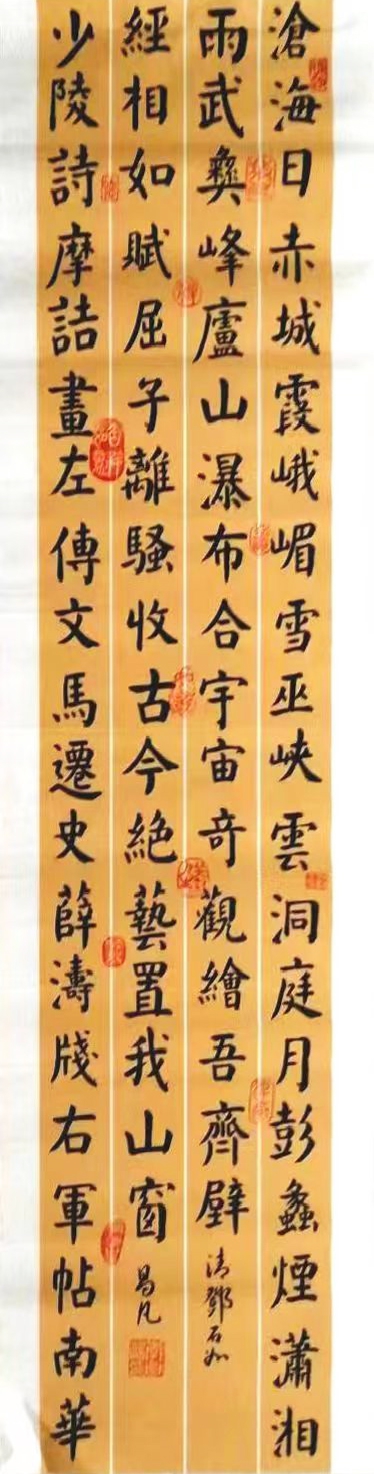 滄海日赤城霞峨嵋雪巫峽雲洞庭月彭蠡煙瀟湘
雨武彝峰廬山瀑布合宇宙奇觀繪吾齊壁
清鄧石如
少陵詩摩詰畫左傳文馬遷史薛濤牋右軍帖南華
經相如賦屈子離騷收古今絕藝置我山窗